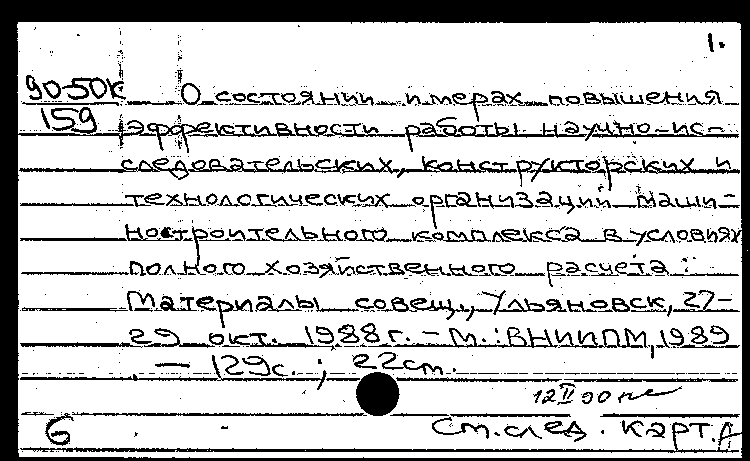 1.
90-50к О состоянии и мерах повышения
159 эффективности работы научно-ис-
следовательских, конструкторских и
технологических организаций маши-
ностроительного комплекса в условиях
полного хозяйственного расчета :
Материалы совещ., Ульяновск, 27-
29 окт. 1988 г. - М.: ВНИИПМ, 1989
. — 129с. ; 22 см.
12 II 90
б См. след. карт. А